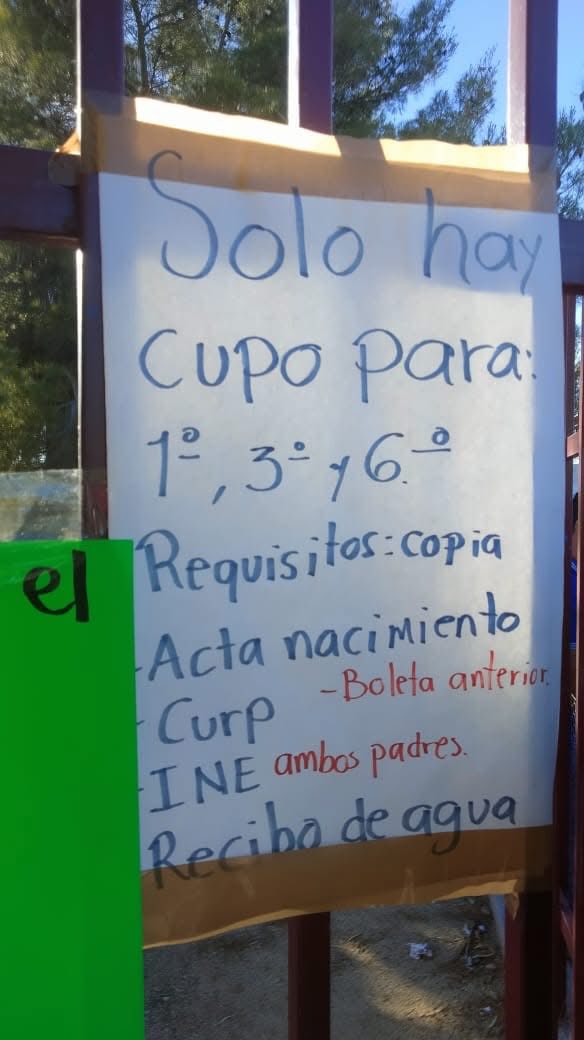 Solo hay
cupo para:
1º, 3º y 6.º
Requisitos: copia
-Acta nacimiento
-Boleta anterior.
- Curp
-INE ambos padres.
Recibo de agua
el